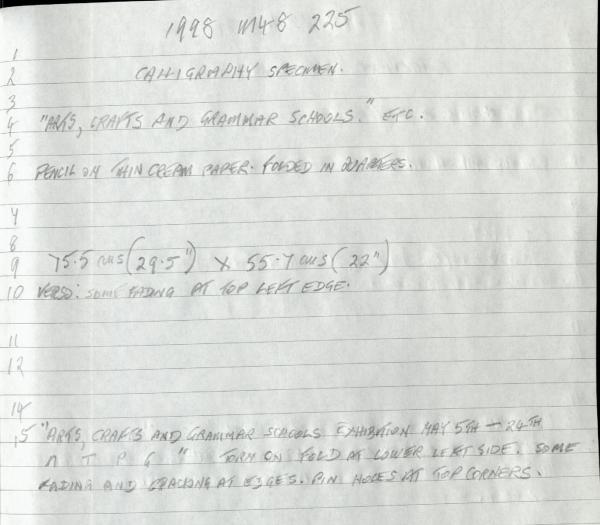 1998 M48 225
1
2 CALLIGRAPHY SPECIMEN.
3
4 "ARTS, CRAFTS AND GRAMMAR SCHOOLS." ETC.
5
6 PENCIL ON THIN CREAM PAPER. FOLDED IN QUARTERS.
7
8
9 75.5 cms (29.5") X 55.7 cms (22")
10 VERSO: SOME FADING AT TOP LEFT EDGE.
11
12
14
15 "ARTS, CRAFTS AND GRAMMAR SCHOOLS EXHIBITION MAY 5TH - 24TH
N T P G " TORN ON FOLD AT LOWER LEFT SIDE. SOME
FADING AND CRACKING AT EDGES. PIN HOLES AT TOP CORNERS.